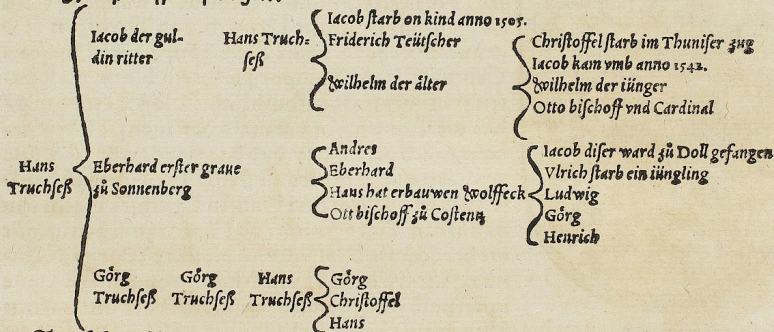 Iacob der gul-
din ritter
Hans Truch-
seß
Iacob starb on kind anno 1505.
Friderich Teütscher
Wilhelm der älter
Christoffel starb im Thuniser zug
Iacob kam vmb anno 1542.
Wilhelm der iünger
Otto bischoff vnd Cardinal
Hans
Truchseß
Eberhard erster graue
zů Sonnenberg
Andres
Eberhard
Hans hat erbauwen Wolffeck
Ott bischoff zů Costentz
Iacob diser ward zů Doll gefangen
Vlrich starb ein iüngling
Ludwig
Görg
Henrich
Görg
Truchseß
Görg
Truchseß
Hans
Truchseß
Görg
Christoffel
Hans